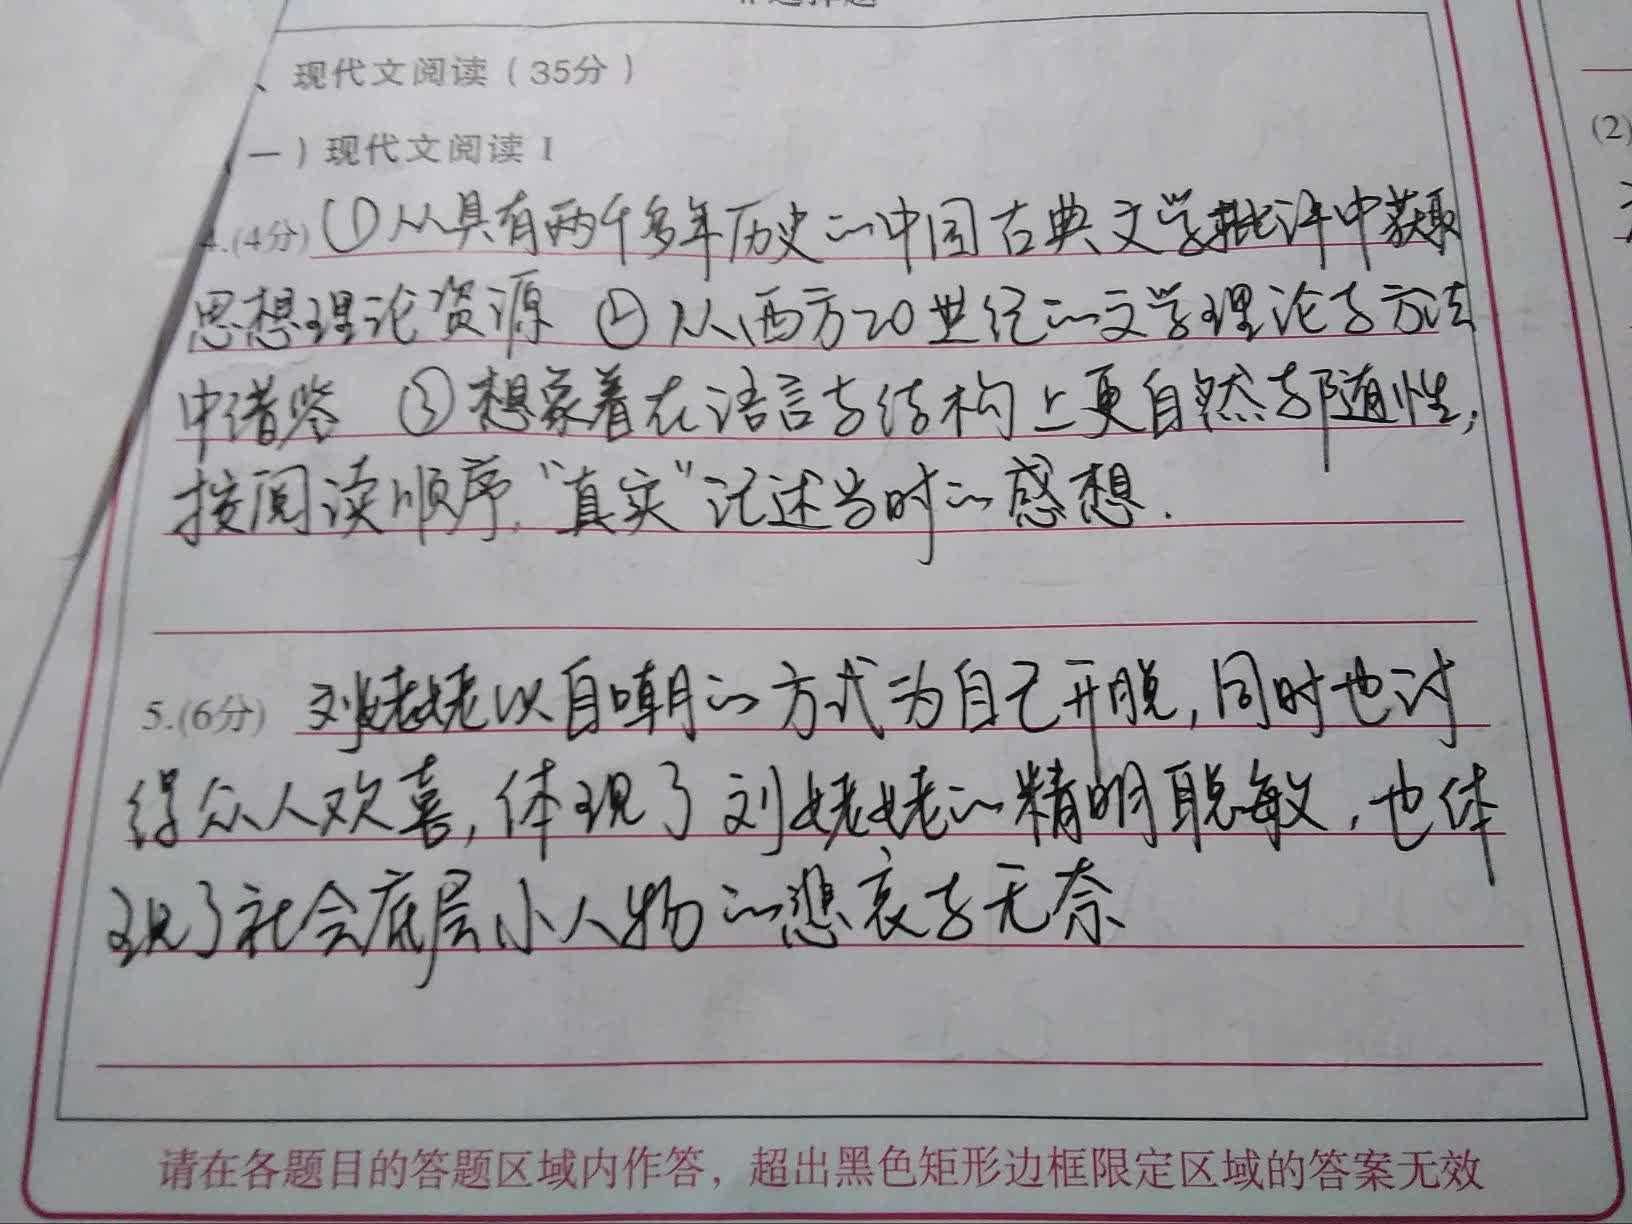 、现代文阅读（35分）
一）现代文阅读 I
4.(4分) ①从具有两千多年历史的中国古典文学批评中获取
思想理论资源 ②从西方20世纪的文学理论与方法
中借鉴 ③想象着在语言与结构上更自然与随性,
按阅读顺序,“真实”记述当时的感想.
5.(6分) 刘姥姥以自嘲的方式为自己开脱,同时也讨
得众人欢喜,体现了刘姥姥的精明聪敏,也体
现了社会底层小人物的悲哀与无奈
请在各题目的答题区域内作答，超出黑色矩形边框限定区域的答案无效
(2)